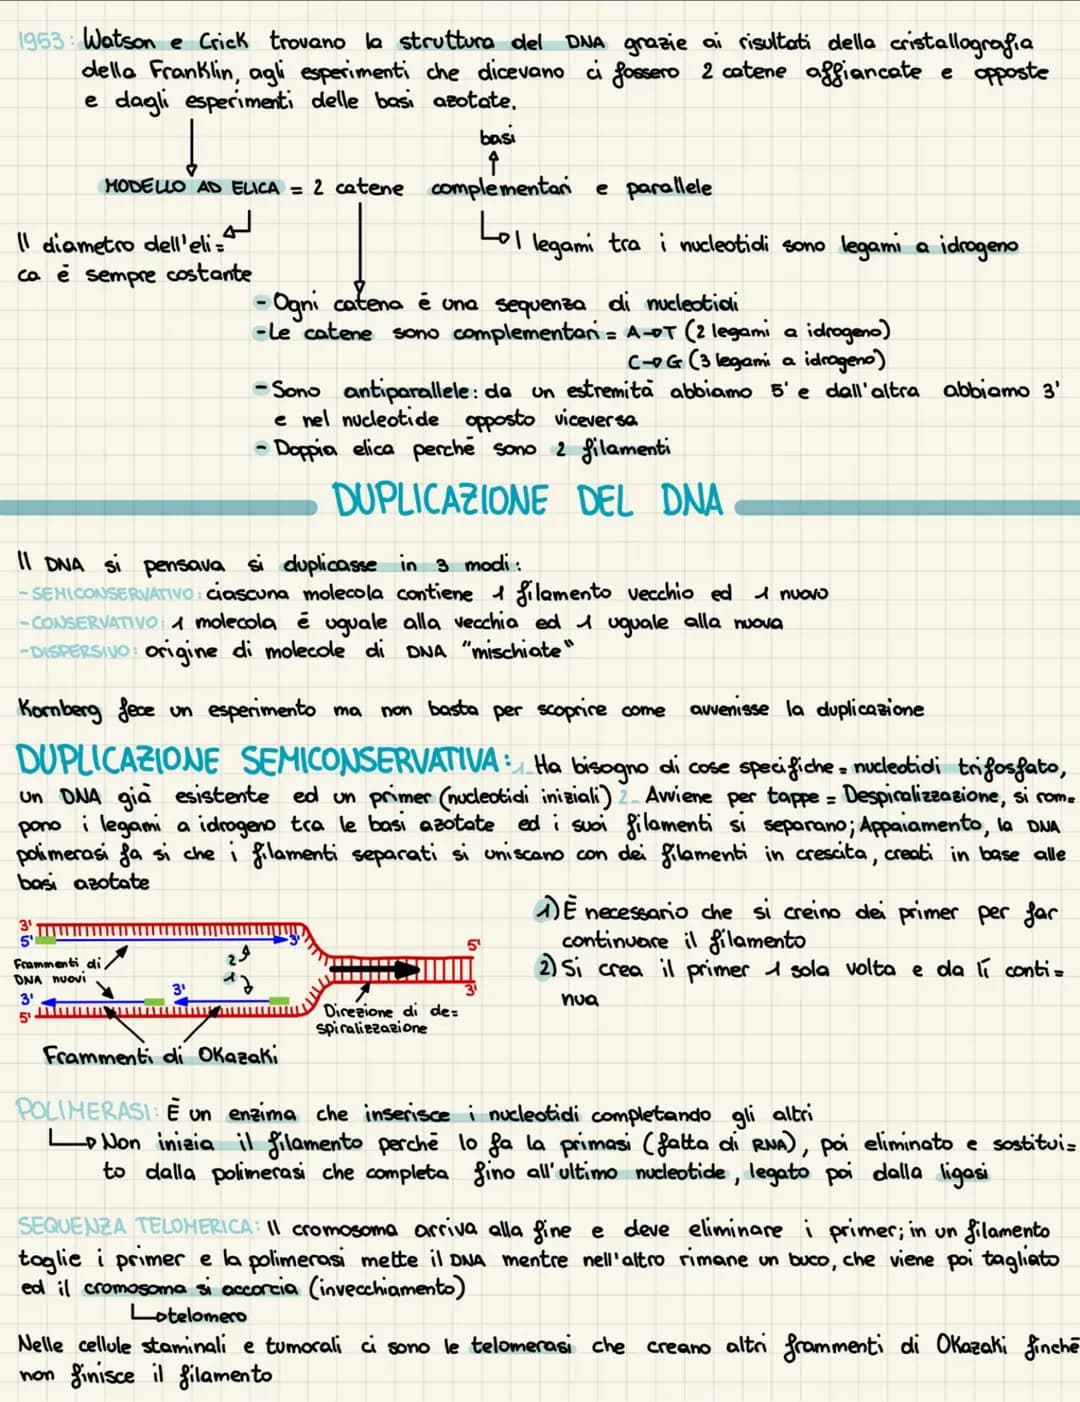 1953: Watson e Crick trovano la struttura del DNA grazie ai risultati della cristallografia
della Franklin, agli esperimenti che dicevano ci fossero 2 catene affiancate e opposte
e dagli esperimenti delle basi azotate.
basi
MODELLO AD ELICA = 2 catene complementari e parallele
Il diametro dell'eli=
ca è sempre costante
I legami tra i nucleotidi sono legami a idrogeno
- Ogni catena è una sequenza di nucleotidi
- Le catene sono complementari = A→T (2 legami a idrogeno)
C→G (3 legami a idrogeno)
- Sono antiparallele: da un estremità abbiamo 5' e dall'altra abbiamo 3'
e nel nucleotide opposto viceversa
- Doppia elica perchè sono 2 filamenti
DUPLICAZIONE DEL DNA
Il DNA si pensava si duplicasse in 3 modi:
- SEMICONSERVATIVO: ciascuna molecola contiene 1 filamento vecchio ed 1 nuovo
- CONSERVATIVO: 1 molecola è uguale alla vecchia ed 1 uguale alla nuova
- DISPERSIVO: origine di molecole di DNA "mischiate"
Kornberg fece un esperimento ma non basta per scoprire come avvenisse la duplicazione
DUPLICAZIONE SEMICONSERVATIVA: 1_ Ha bisogno di cose specifiche = nucleotidi trifosfato,
un DNA già esistente ed un primer (nucleotidi iniziali) 2_ Avviene per tappe = Despiralizzazione, si rom=
pono i legami a idrogeno tra le basi azotate ed i suoi filamenti si separano; Appaiamento, la DNA
polimerasi fa si che i filamenti separati si uniscano con dei filamenti in crescita, creati in base alle
basi azotate
1) È necessario che si creino dei primer per far
continuare il filamento
2) Si crea il primer 1 sola volta e da lì conti=
nua
3'
5'
3'
5'
Frammenti di
DNA nuovi
2
1
3'
3'
5'
3'
Direzione di de=
spiralizzazione
Frammenti di Okazaki
POLIMERASI: È un enzima che inserisce i nucleotidi completando gli altri
Non inizia il filamento perchè lo fa la primasi (fatta di RNA), poi eliminato e sostitui=
to dalla polimerasi che completa fino all'ultimo nucleotide, legato poi dalla ligasi
SEQUENZA TELOMERICA: Il cromosoma arriva alla fine e deve eliminare i primer; in un filamento
taglie i primer e la polimerasi mette il DNA mentre nell'altro rimane un buco, che viene poi tagliato
ed il cromosoma si accorcia (invecchiamento)
telomero
Nelle cellule staminali e tumorali ci sono le telomerasi che creano altri frammenti di Okazaki finchè
non finisce il filamento